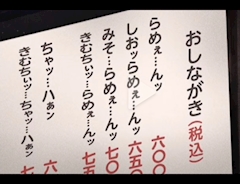 おしながき(税込)
らめぇ…んッ 六〇〇
しおッらめぇ…んッ 六五〇
みそ…らめぇ…んッ 七〇〇
きむちぃッ…らめぇ…んッ 七五
ちゃッ…ハぁン 六
きむちぃッ…ちゃッ…ハぁン 七